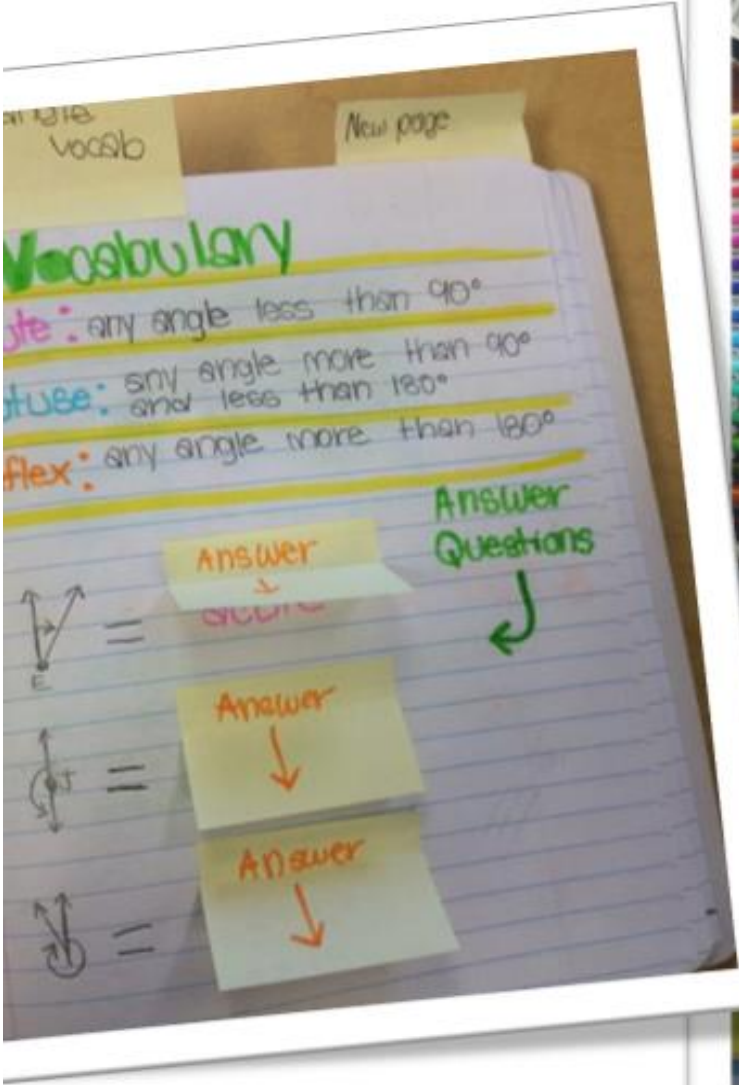 angle
vocab
New page
Vocabulary
ute: any angle less than 90°
otuse: any angle more than 90°
and less than 180°
flex: any angle more than 180°
Answer
Questions
Answer
acute
E
=
Answer
J
=
Answer
=